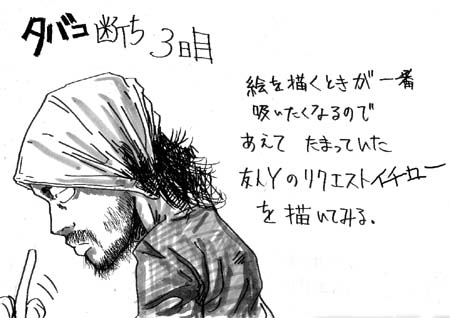 タバコ断ち 3日目
絵を描くときが一番
吸いたくなるので
あえて たまっていた
友人Yのリクエストイチロー
を描いてみる。